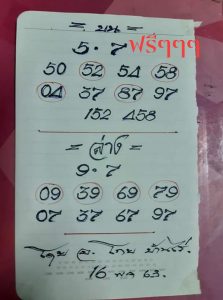 = บน =
ฟรีๆๆๆ
5 · 7
50 52 54 58
04 37 87 97
152 458
= ล่าง =
9 · 7
09 39 69 79
07 37 67 97
โดย อ. โกย บ้านไร่.
16 พค 63.